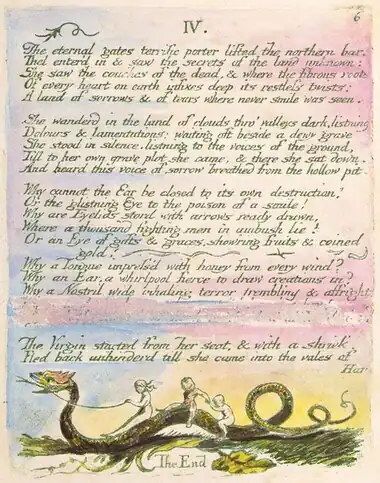 6
IV.
The eternal gates terrific porter lifted the northern bar:
Thel enter'd in & saw the secrets of the land unknown:
She saw the couches of the dead, & where the fibrous roots
Of every heart on earth infixes deep its restless twists:
A land of sorrows & of tears where never smile was seen.
She wanderd in the land of clouds thro' valleys dark, listning
Dolours & lamentations: waiting oft beside a dewy grave
She stood in silence, listning to the voices of the ground,
Till to her own grave plot she came, & there she sat down.
And heard this voice of sorrow breathed from the hollow pit
Why cannot the Ear be closed to its own destruction?
Or the glistning Eye to the poison of a smile!
Why are Eyelids stord with arrows ready drawn,
Where a thousand fighting men in ambush lie?
Or an Eye of gifts & graces, show'ring fruits & coined
gold!
Why a Tongue impress'd with honey from every wind?
Why an Ear, a whirlpool fierce to draw creations in?
Why a Nostril wide inhaling terror trembling & affright
The Virgin started from her seat, & with a shriek
Fled back unhinderd till she came into the vales of
Har
The End